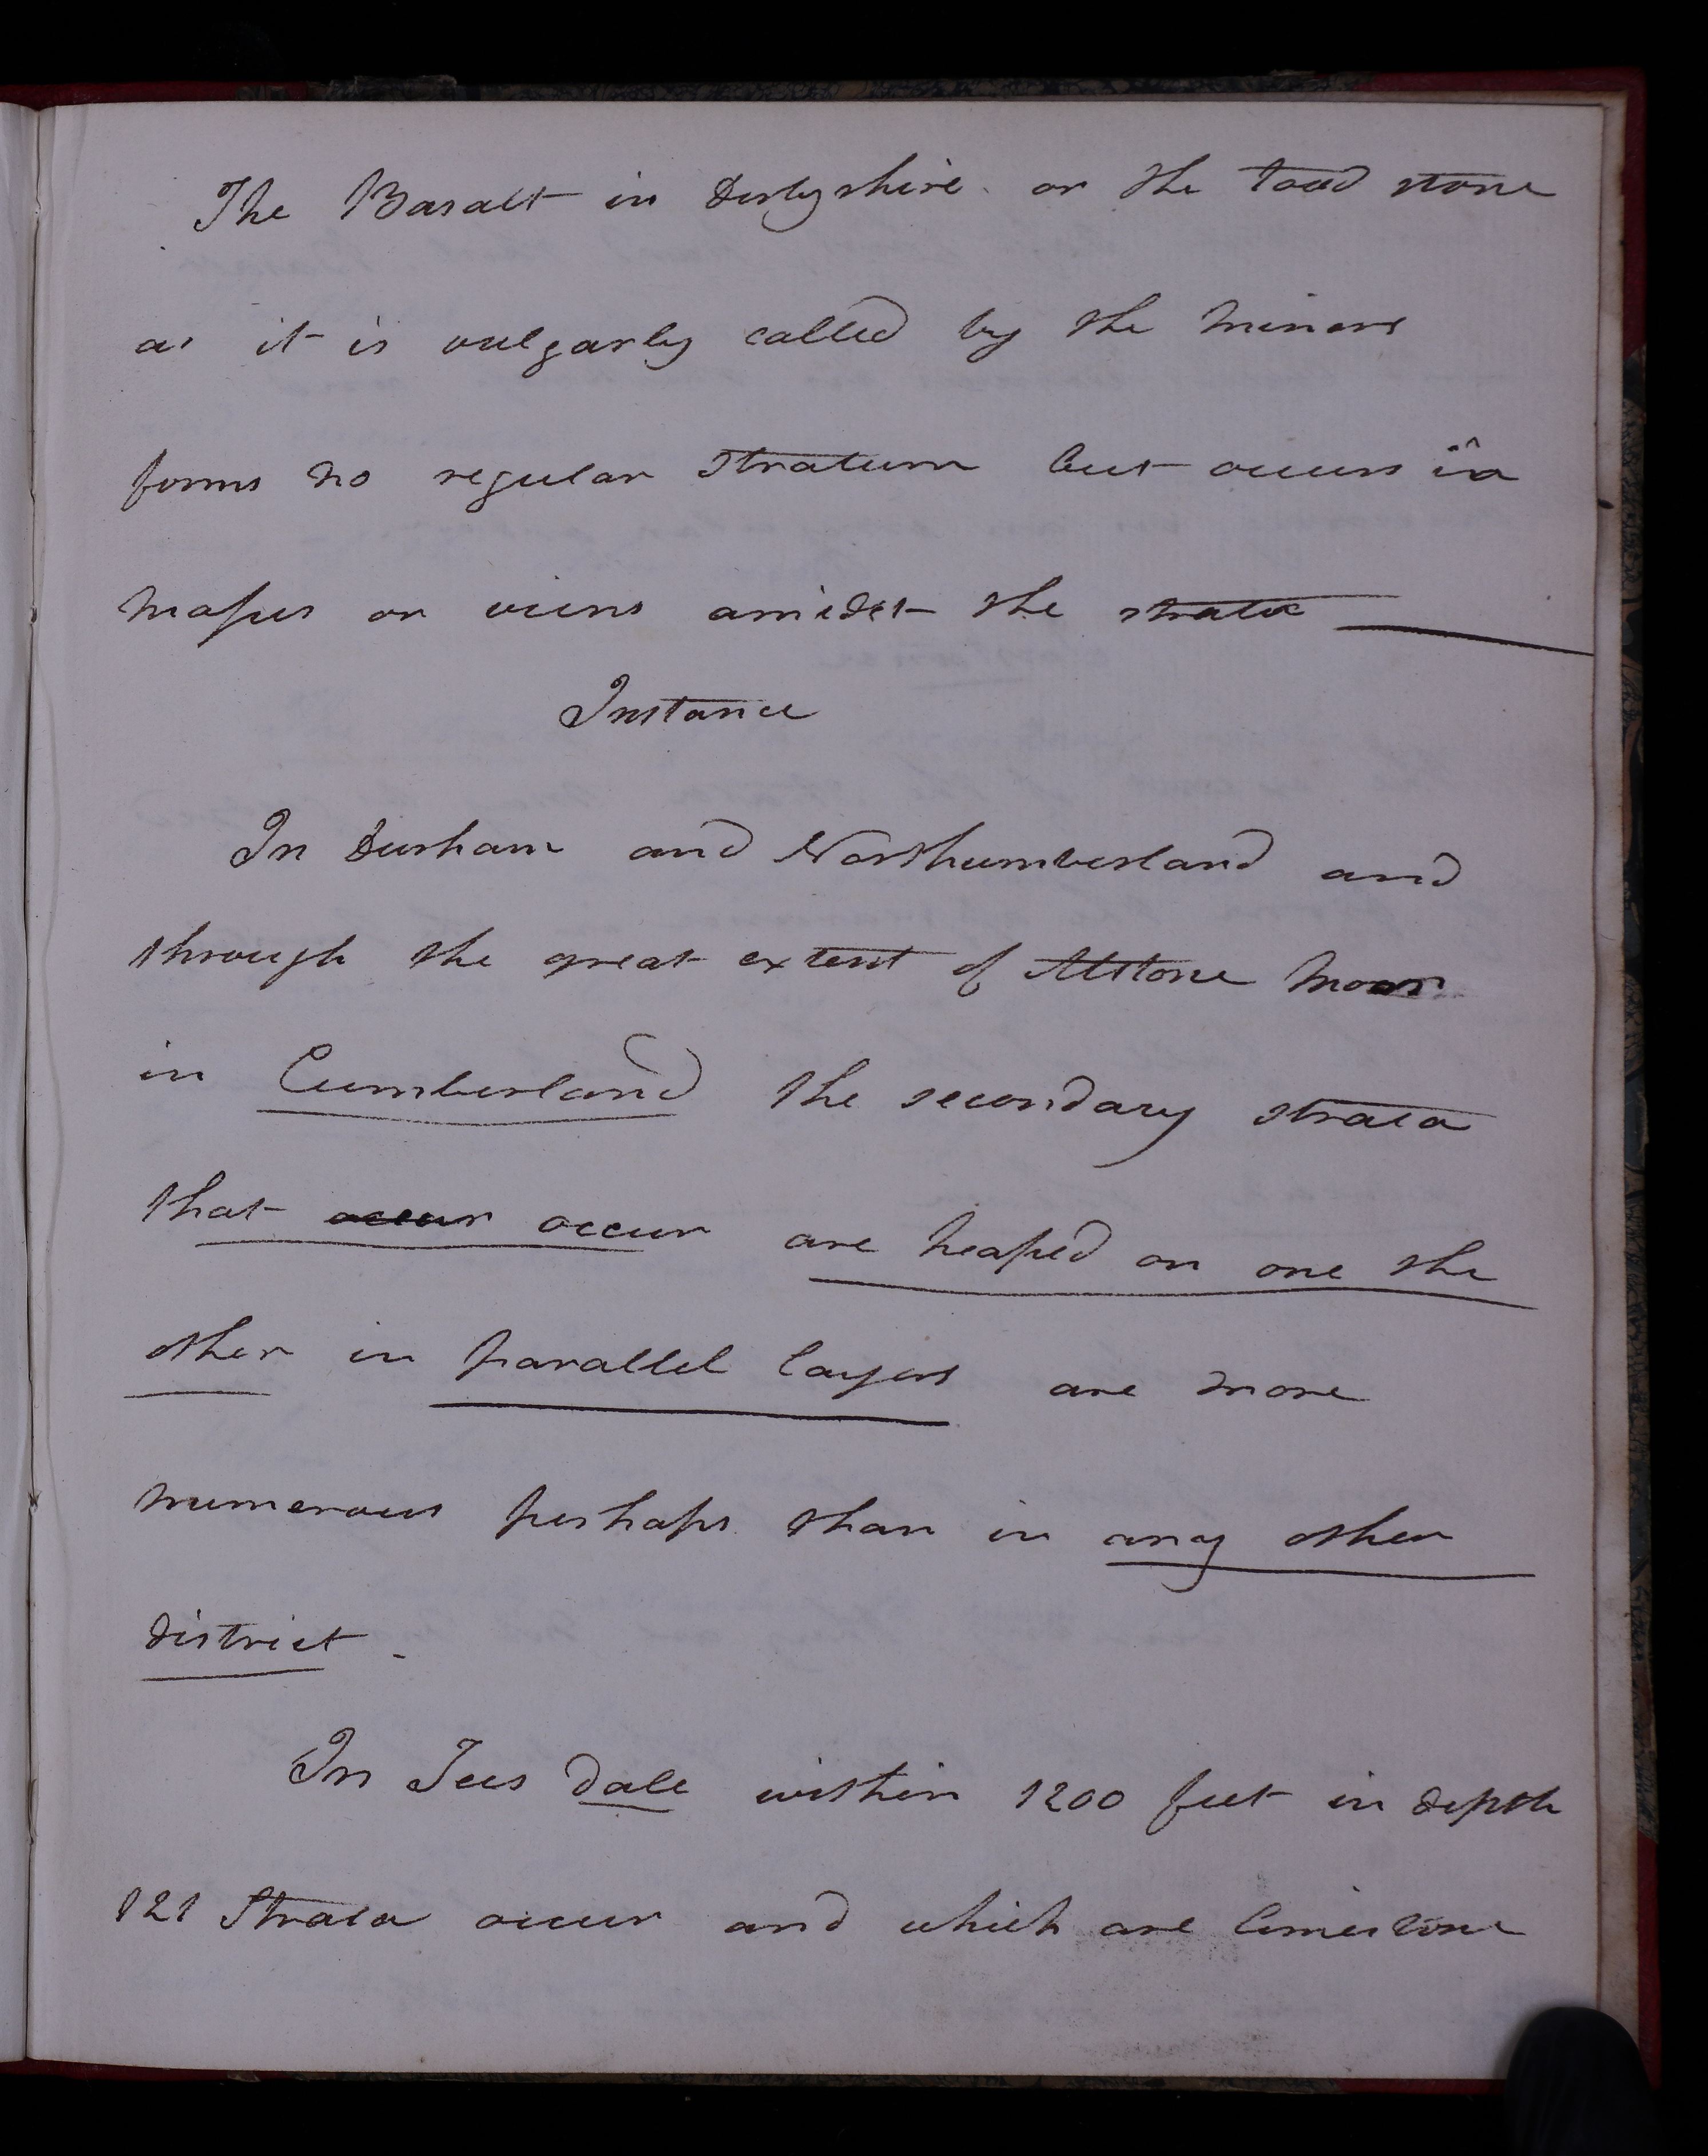 The Basalt in Derbyshire or the toad stone
as it is vulgarly called by the miners
forms no regular stratum but occurs in
masses or viens amidst the strata
Instance
In Durham and Northumberland and
through the great extent of Alstone Moor
in Cumberland the secondary strata
that occur occur are heaped on one the
other in parallel layers are more
numerous perhaps than in any other
district.
In Tees dale within 1200 feet in depth
121 Strata occur and which are limestone